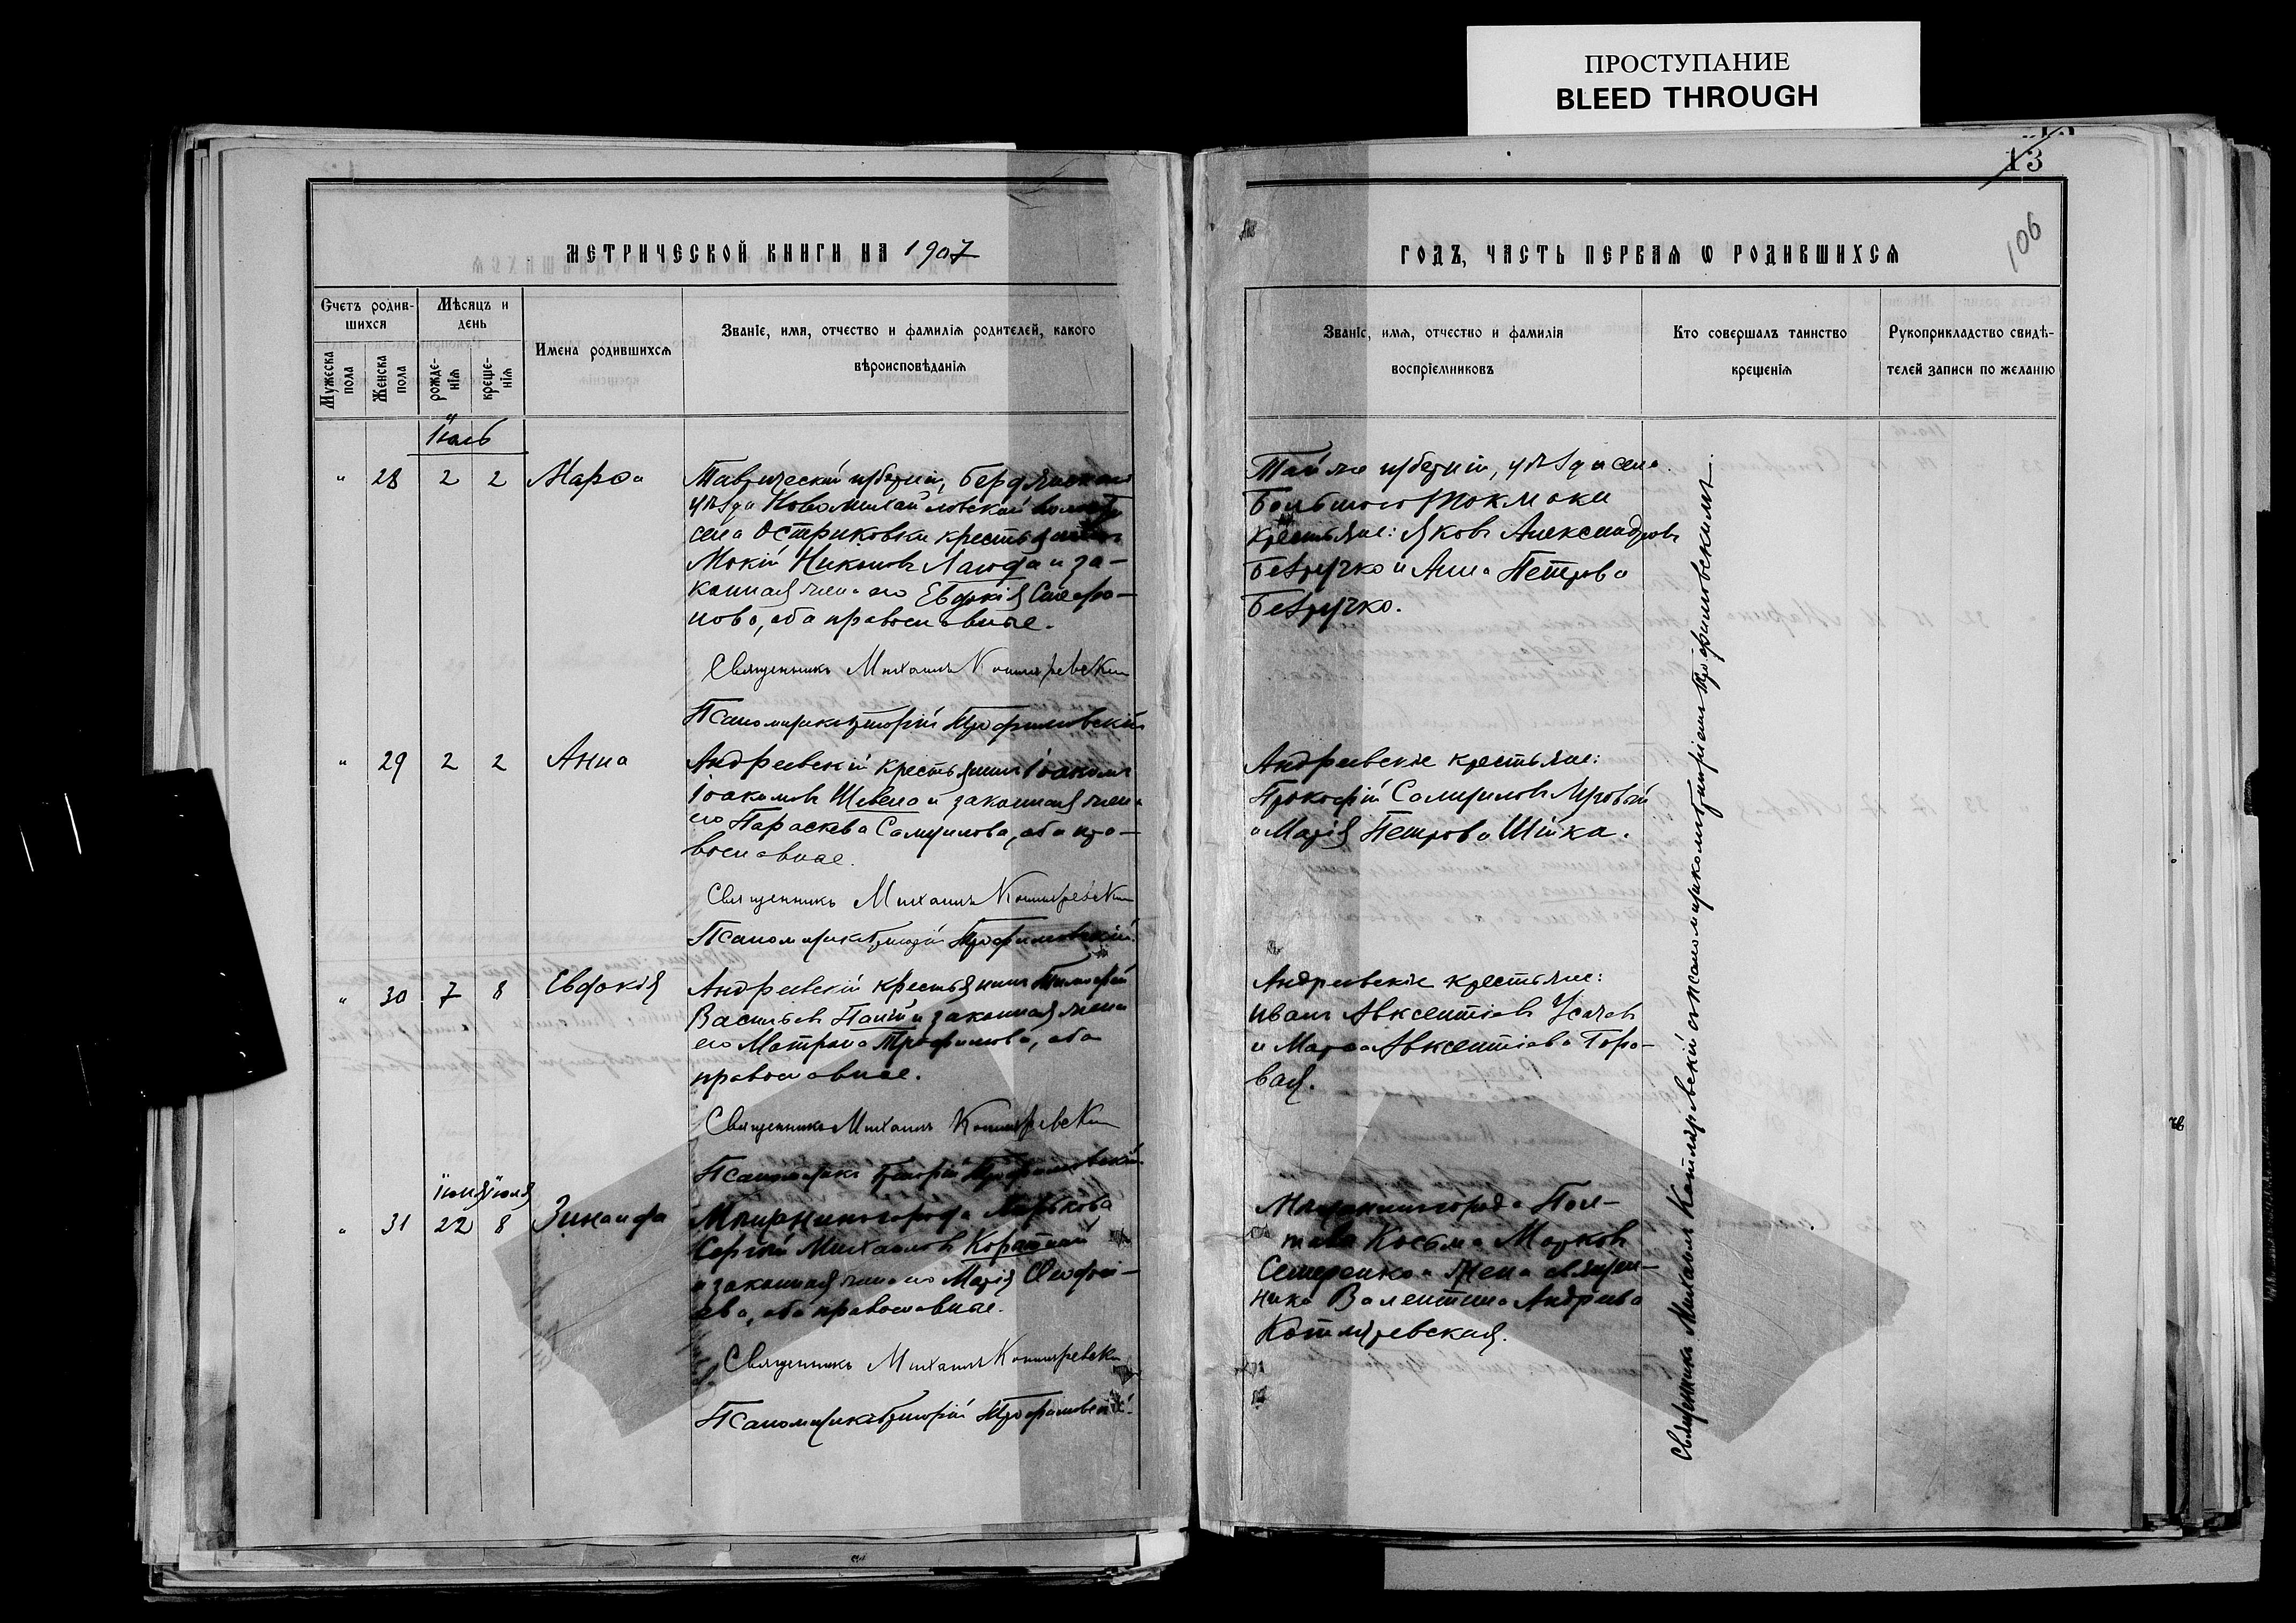 ПРОСТУПАНИЕ
BLEED THROUGH
13
106
МЕТРИЧЕСКОЙ КНИГИ НА 1907
ГОДЪ, ЧАСТЬ ПЕРВАЯ Ѡ РОДИВШИХСЯ
Счетъ родив-
шихся
Мужеска
пола
Женска
пола
Мѣсяцъ и
день
рожде-
нїя
креще-
нїя
Имена родившихся
Званїе, имя, отчество и фамилїя родителей, какого
вѣроисповѣданїя
Званїе, имя, отчество и фамилїя
воспрїемниковъ
Кто совершалъ таинство
крещенїя
Рукоприкладство свидѣ-
телей записи по желанїю
Іюль
" 28 2 2 Марѳа
Таврической губерніи, Бердянскаго
уѣзда Новомихайловской волости
села Остриковки крестьянинъ
Мокій Никоновъ Лагода и за-
конная жена его Евдокія Сафро-
нова, оба православные.
Священникъ Михаилъ Котляревскій
Псаломщикъ Григорій Трофимовскій
Той же губерніи, уѣзда и села
Большого Токмака
крестьяне: Яковъ Александровъ
Безручко и Анна Петрова
Безручко.
" 29 2 2 Анна
Андреевскій крестьянинъ Іоакимъ
Іоакимовъ Шевело и законная жена
его Параскева Самуилова, оба пра-
вославные.
Священникъ Михаилъ Котляревскій
Псаломщикъ Григорій Трофимовскій
Андреевскіе крестьяне:
Прокофій Самуиловъ Луговой
и Марія Петрова Шійка.
" 30 7 8 Евдокія
Андреевскій крестьянинъ Тимофей
Васильевъ и законная жена
его Матрона Трофимова, оба
православные.
Священникъ Михаилъ Котляревскій
Псаломщикъ Григорій Трофимовскій
Андреевскіе крестьяне:
Иванъ Авксентіевъ Усачевъ
и Марѳа Авксентіева Горо-
вая.
Іюня Іюля
" 31 22 8 Зинаида
Мѣщанинъ города Харькова
Сергѣй Михаиловъ
и законная жена его Марія
ева, оба православные.
Священникъ Михаилъ Котляревскій
Псаломщикъ Григорій Трофимовскій
Мѣщанинъ города Пол-
тавы Косьма Марковъ
Семеренко и жена священ-
ника Валентина Андреева
Котляревская.
Священникъ Михаилъ Котляревскій съ псаломщикомъ Григоріемъ Трофимовскимъ.